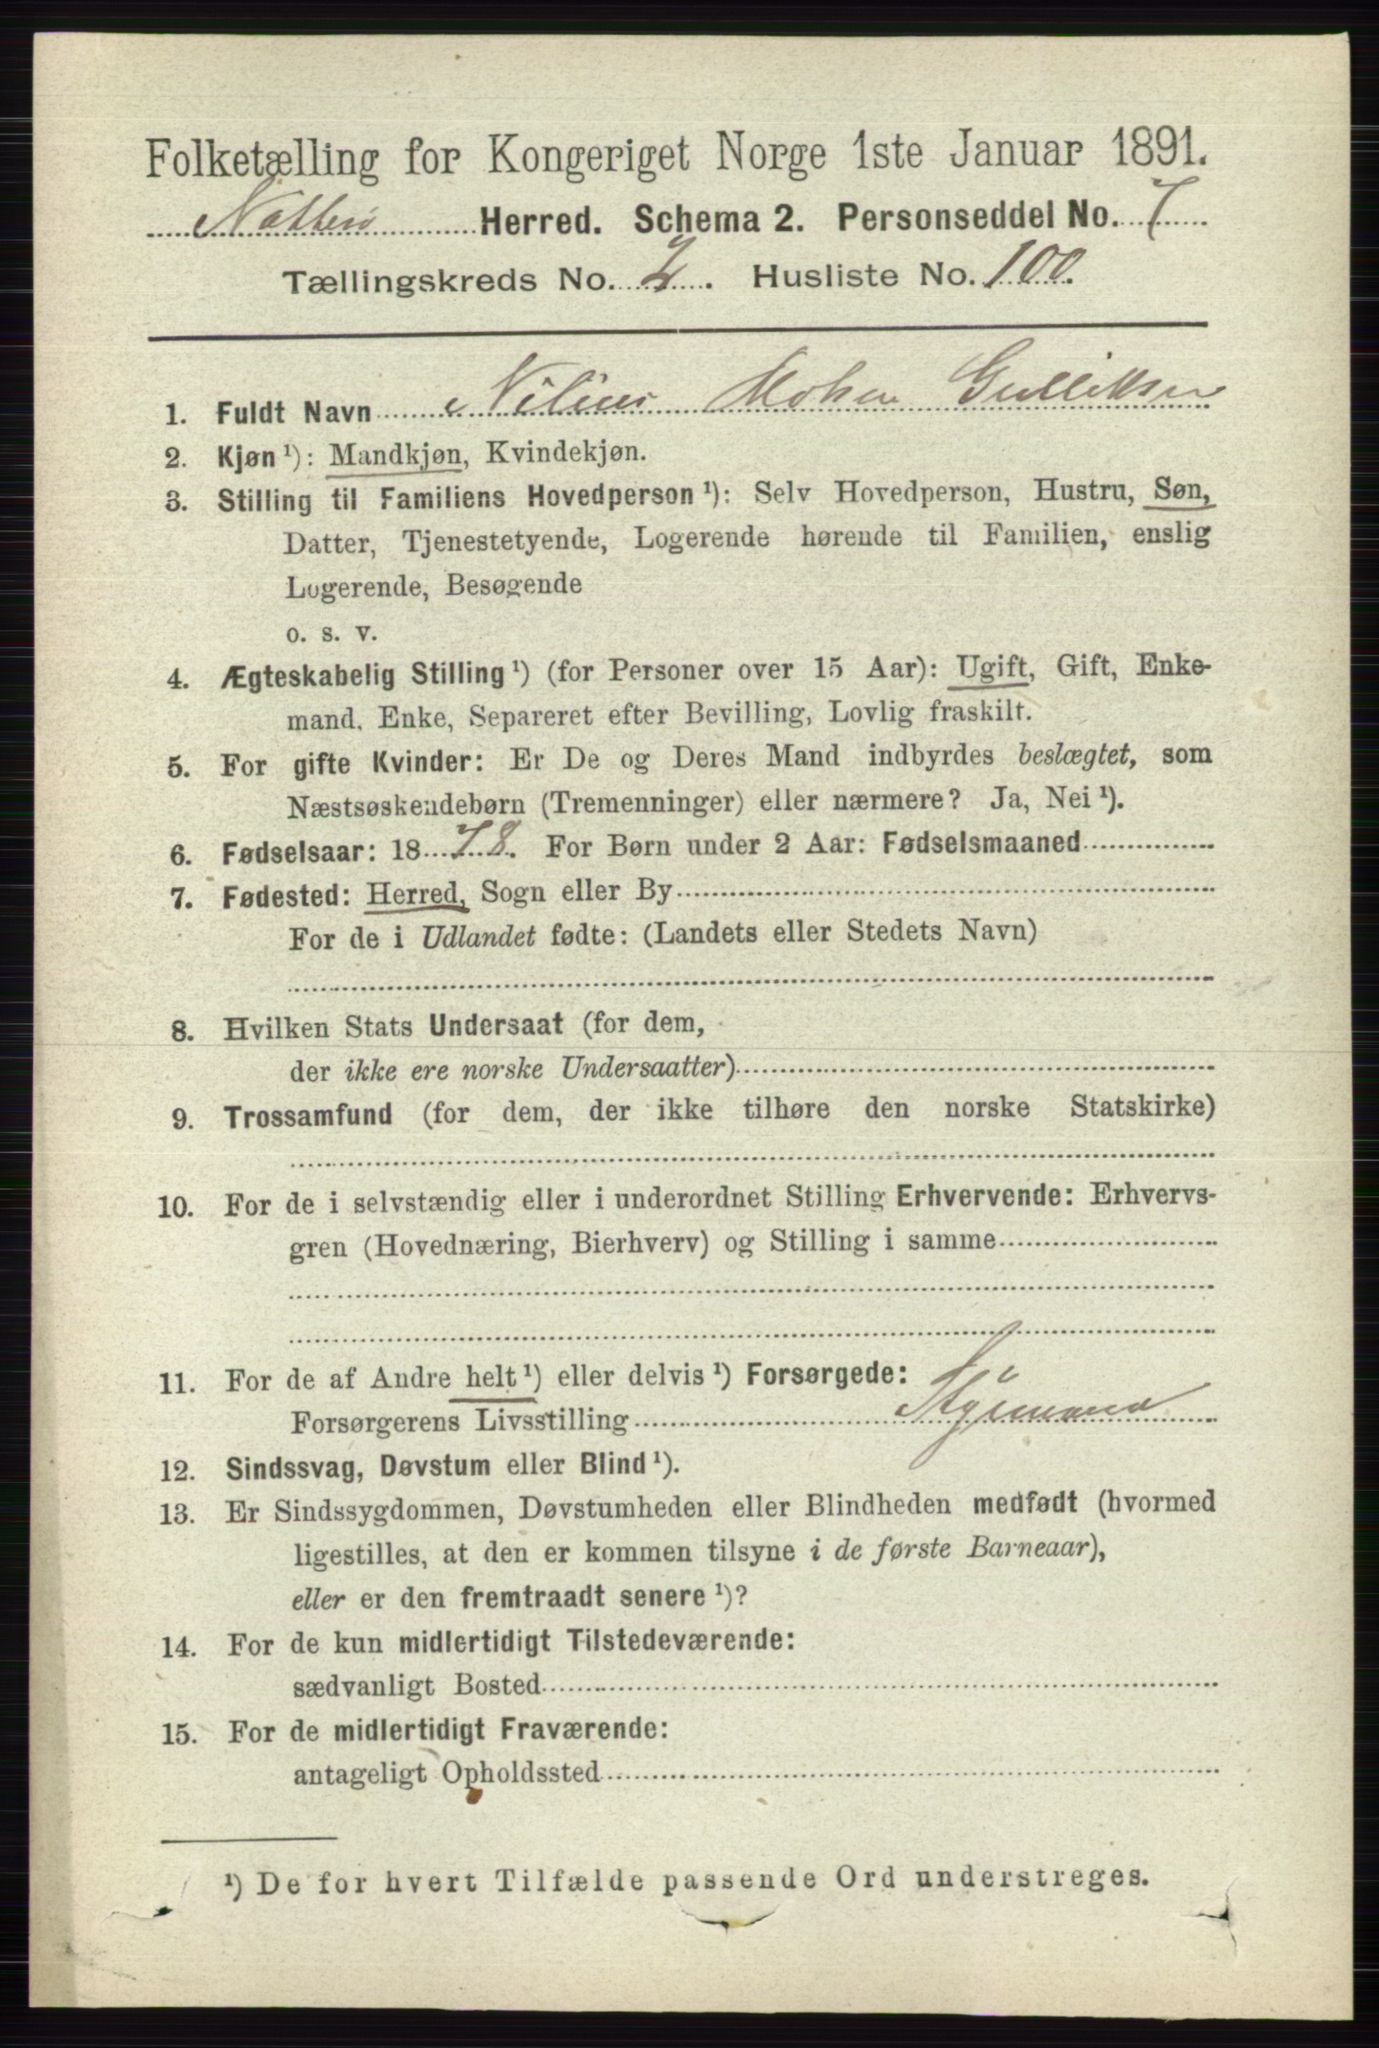 Folketælling for Kongeriget Norge 1ste Januar 1891.
Nøtterø Herred. Schema 2. Personseddel No. 7
Tællingskreds No. 2. Husliste No. 100.
1. Fuldt Navn Nilius Gulliksen
2. Kjøn ¹): Mandkjøn, Kvindekjøn.
3. Stilling til Familiens Hovedperson ¹): Selv Hovedperson, Hustru, Søn,
Datter, Tjenestetyende, Logerende hørende til Familien, enslig
Logerende, Besøgende
o. s. v.
4. Ægteskabelig Stilling ¹) (for Personer over 15 Aar): Ugift, Gift, Enke-
mand, Enke, Separeret efter Bevilling, Lovlig fraskilt.
5. For gifte Kvinder: Er De og Deres Mand indbyrdes beslægtet, som
Næstsøskendebørn (Tremenninger) eller nærmere? Ja, Nei ¹).
6. Fødselsaar: 1878. For Børn under 2 Aar: Fødselsmaaned
7. Fødested: Herred, Sogn eller By
For de i Udlandet fødte: (Landets eller Stedets Navn)
8. Hvilken Stats Undersaat (for dem,
der ikke ere norske Undersaatter)
9. Trossamfund (for dem, der ikke tilhøre den norske Statskirke)
10. For de i selvstændig eller i underordnet Stilling Erhvervende: Erhvervs-
gren (Hovednæring, Bierhverv) og Stilling i samme
11. For de af Andre helt ¹) eller delvis ¹) Forsørgede:
Forsørgerens Livsstilling Styrmand
12. Sindssvag, Døvstum eller Blind ¹).
13. Er Sindssygdommen, Døvstumheden eller Blindheden medfødt (hvormed
ligestilles, at den er kommen tilsyne i de første Barneaar),
eller er den fremtraadt senere ¹)?
14. For de kun midlertidigt Tilstedeværende:
sædvanligt Bosted
15. For de midlertidigt Fraværende:
antageligt Opholdssted
¹) De for hvert Tilfælde passende Ord understreges.